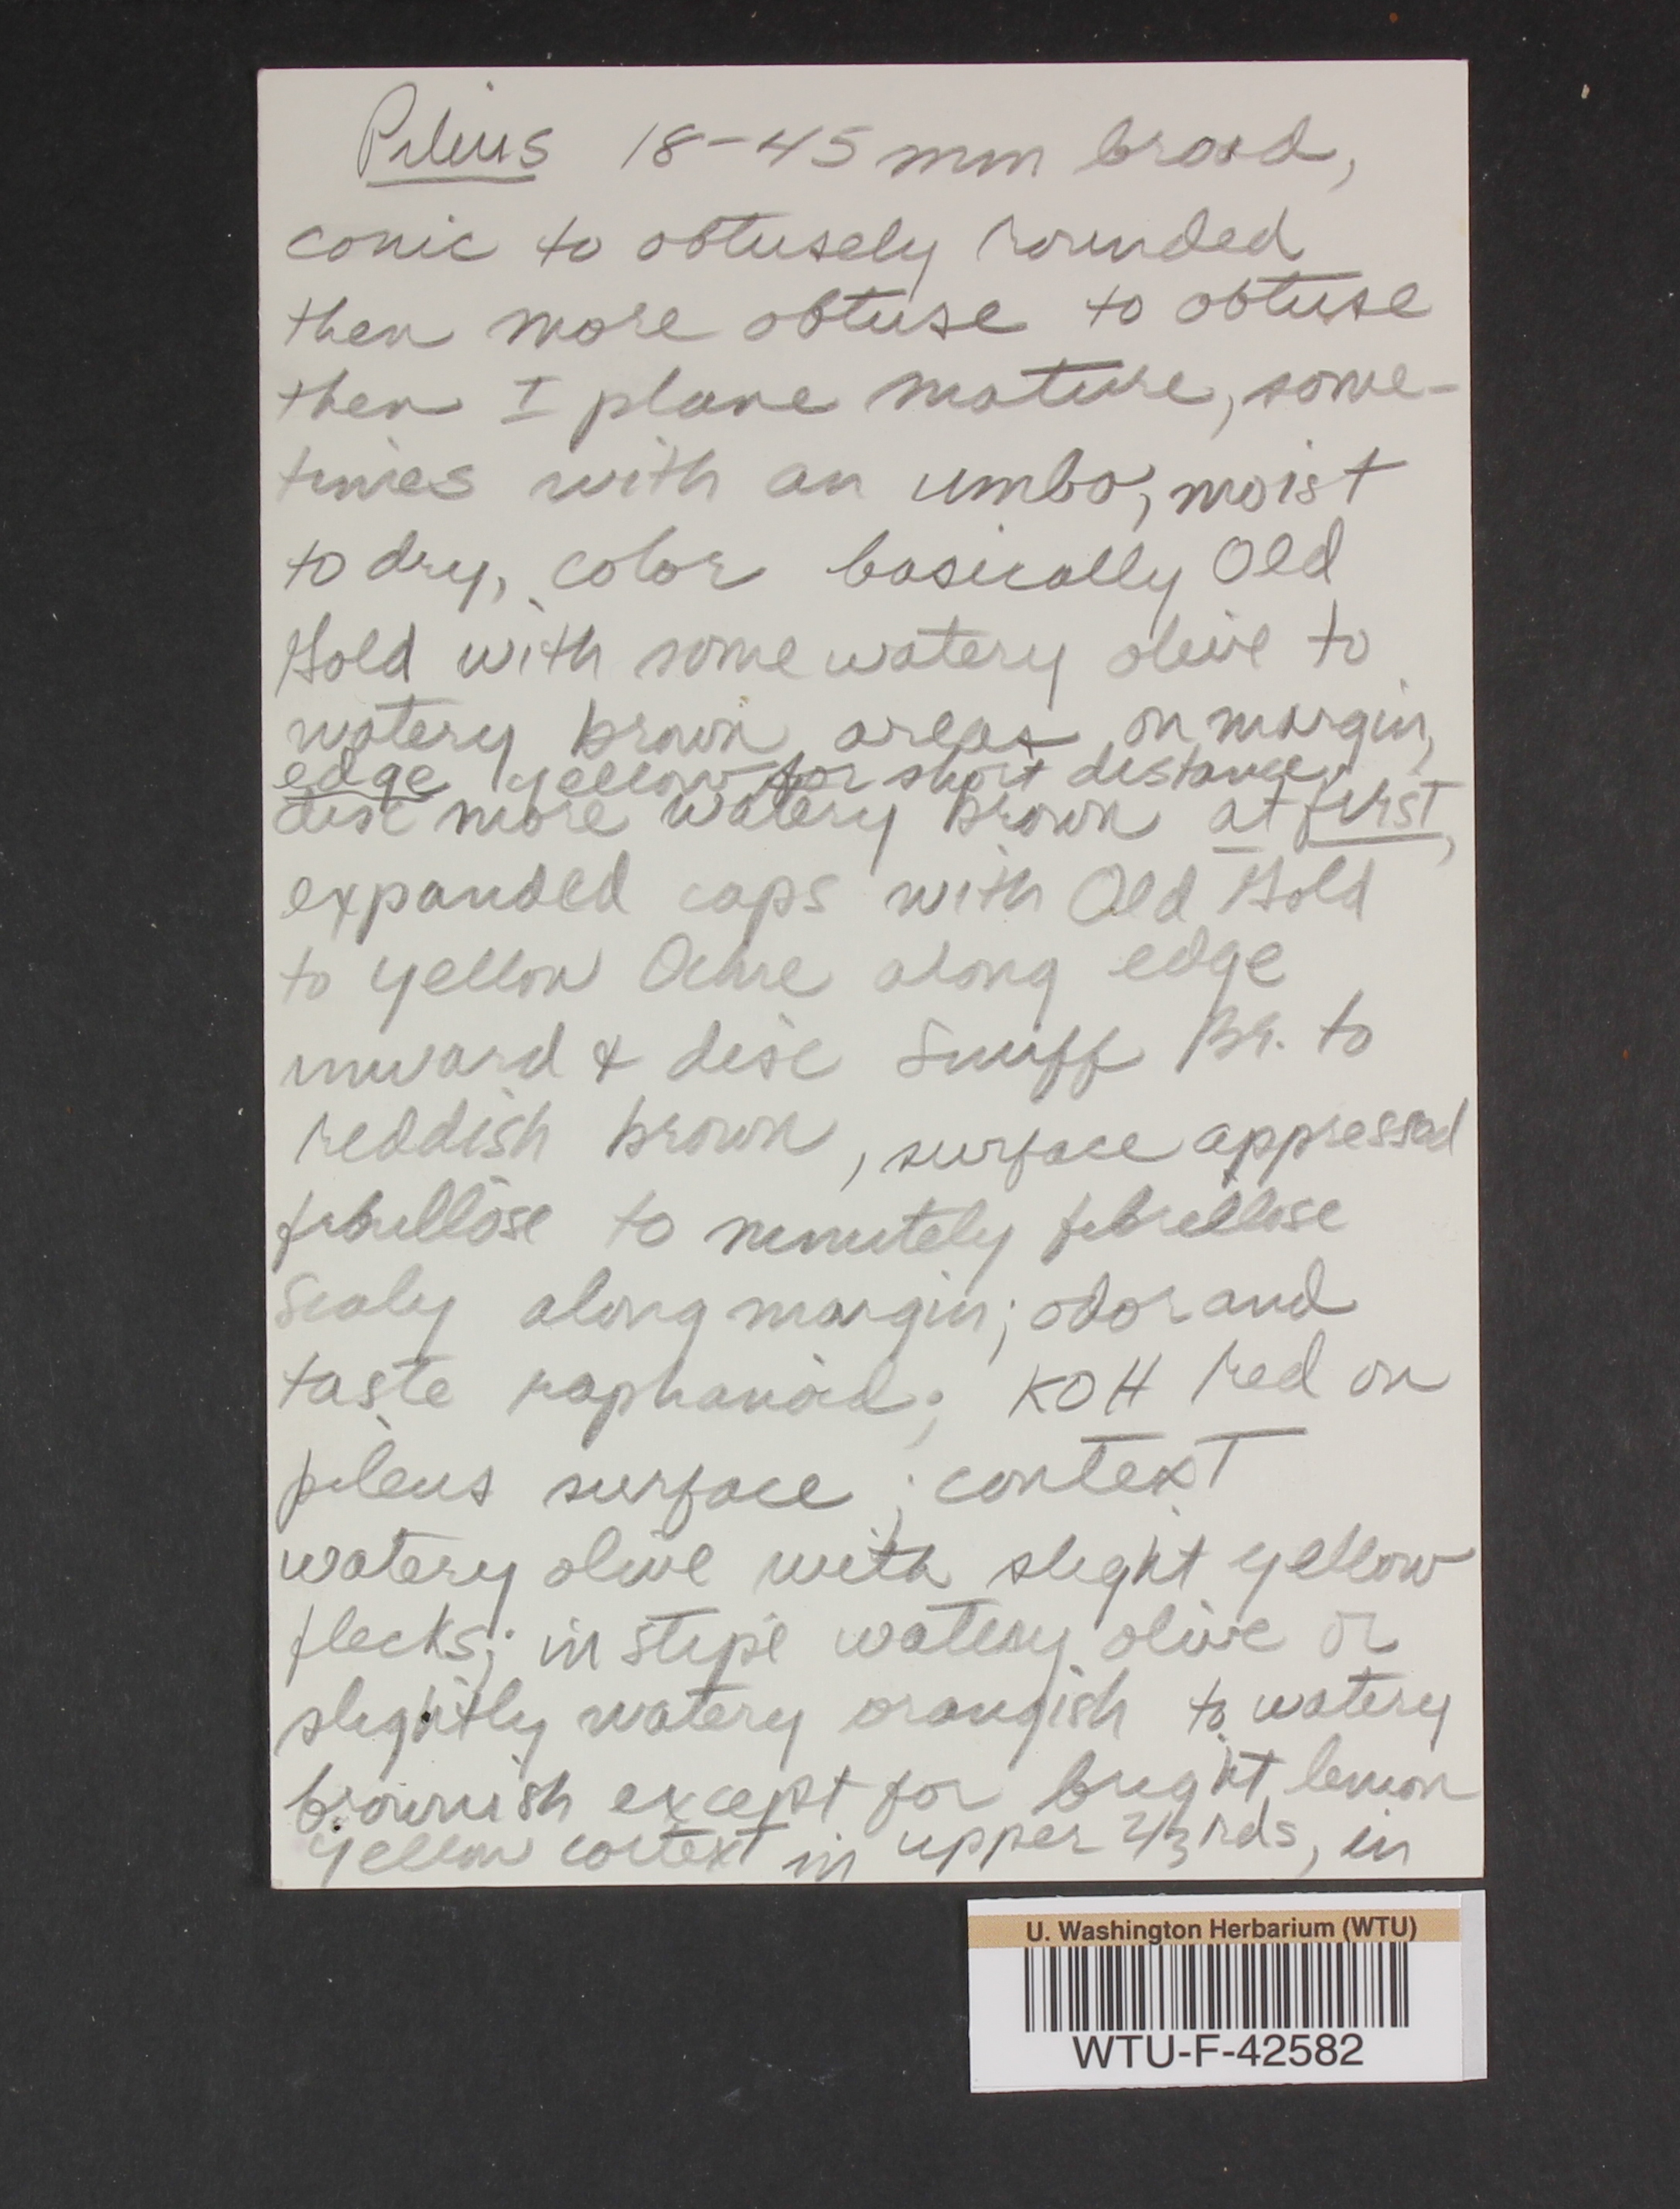 Pileus 18-45 mm broad,
conic to obtusely rounded
then more obtuse to obtuse
then I plane mature, some-
times with an umbo, moist
to dry, color basically Old
Gold with some watery olive to
watery brown areas on margin,
edge yellow for short distance
disc more watery brown at first,
expanded caps with Old Gold
to yellow Ochre along edge
inward & disc Snuff Br. to
reddish brown, surface appressed
fibrillose to minutely fibrillose
scaly along margin; odor and
taste raphanoid; KOH red on
pileus surface; context
watery olive with slight yellow
flecks; in stipe watery olive or
slightly watery orangish to watery
brownish except for bright lemon
yellow cortext in upper 2/3rds, in
U. Washington Herbarium (WTU)
WTU-F-42582